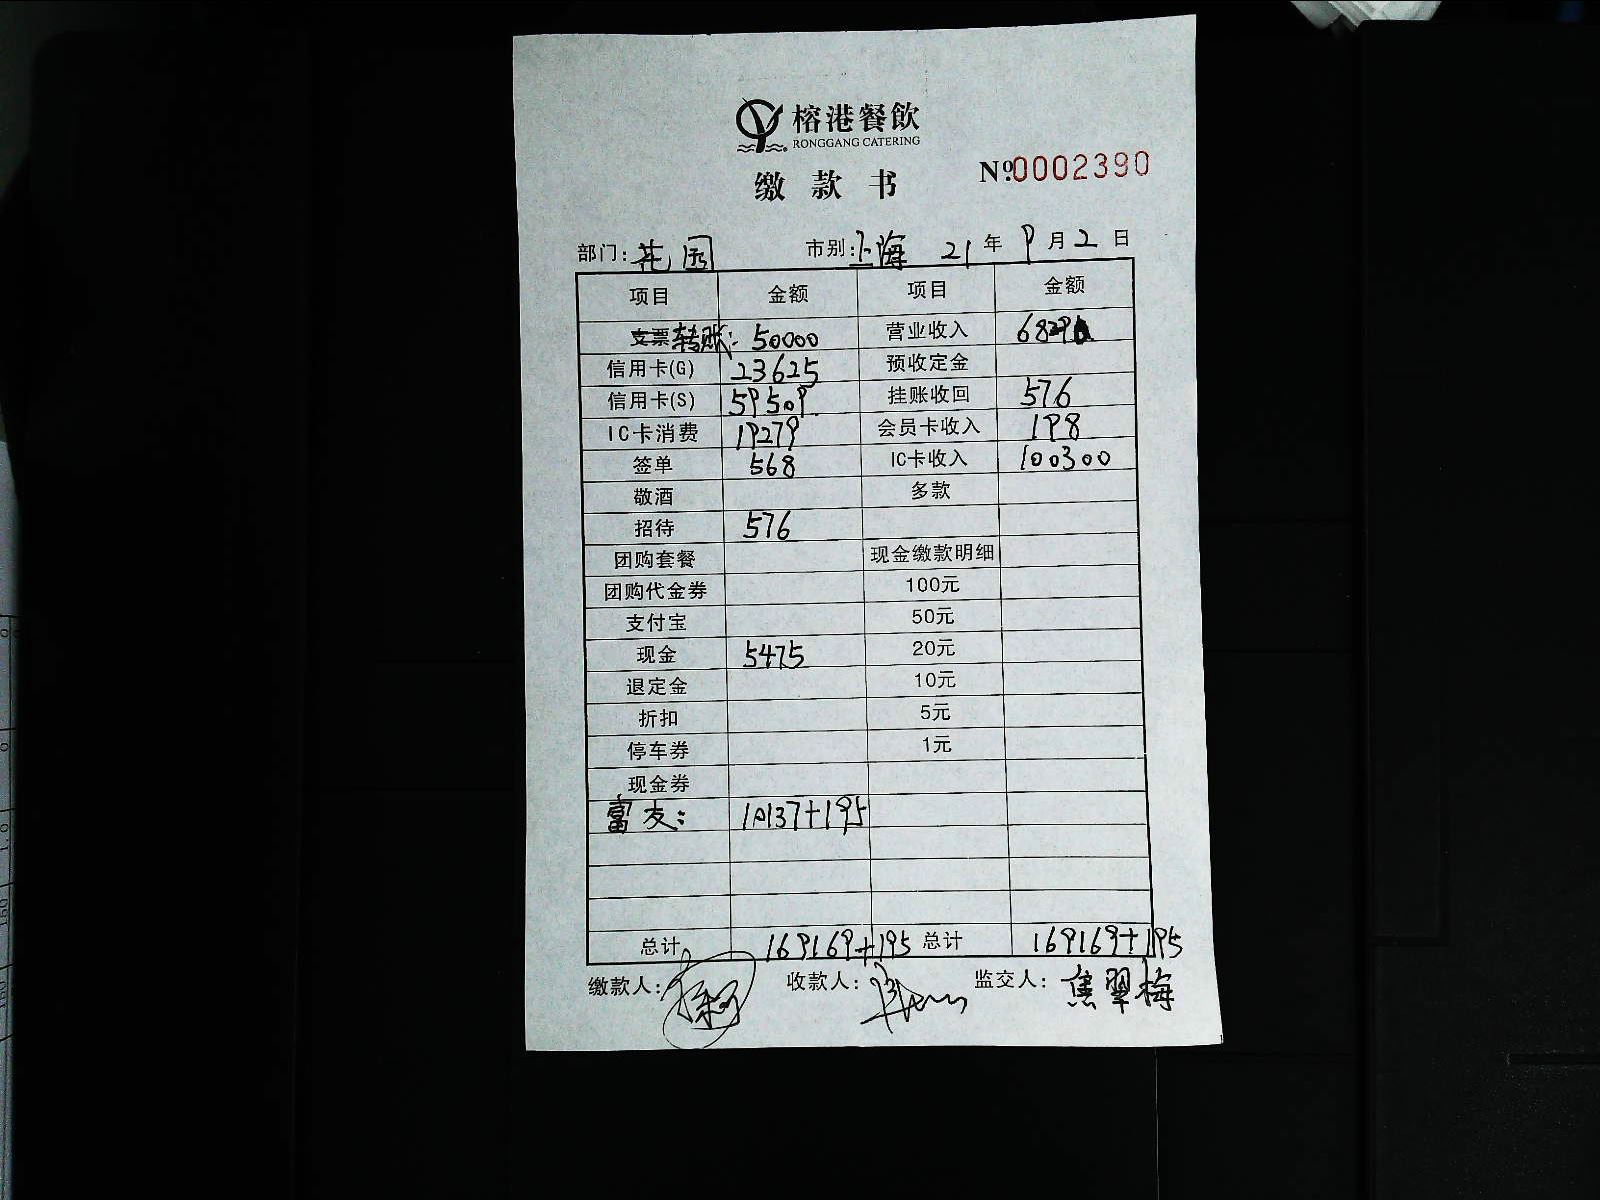 榕港餐飲
RONGGANG CATERING
缴款书 №0002390
部门: 花园 市别: 上海 21年9月2日
项目 金额 项目 金额
支票 转账: 50000 营业收入
信用卡(G) 23625 预收定金
信用卡(S) 59509 挂账收回 576
IC卡消费 19279 会员卡收入 198
签单 568 IC卡收入 100300
敬酒 多款
招待 576
团购套餐 现金缴款明细
团购代金券 100元
支付宝 50元
现金 5475 20元
退定金 10元
折扣 5元
停车券 1元
现金券
富友: 10137+195
总计 169169+195 总计 169169+195
缴款人: 收款人: 监交人: 焦翠梅